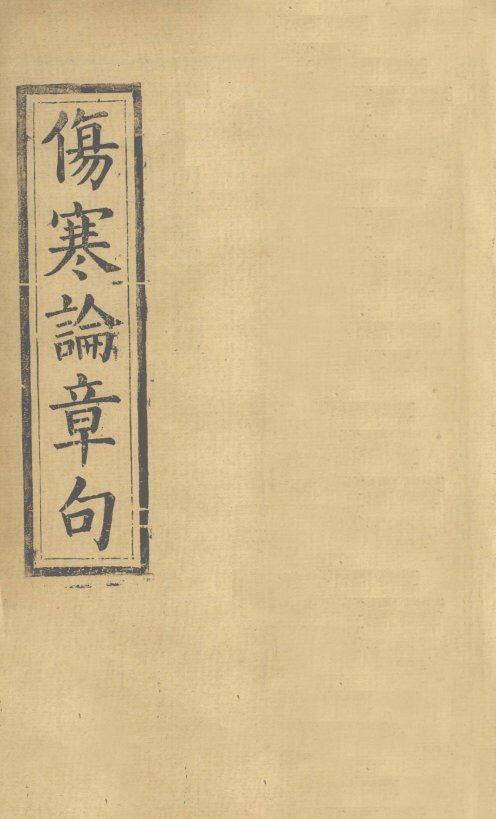 傷寒論章句